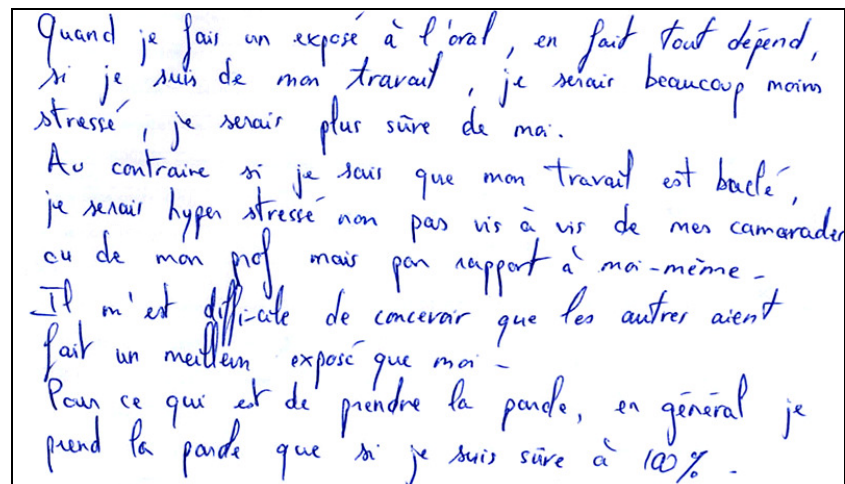 Quand je fais un exposé à l'oral, en fait tout dépend,
si je suis de mon travail, je serais beaucoup moins
stressé, je serais plus sûre de moi.
Au contraire si je sais que mon travail est baclé,
je serais hyper stressé non pas vis à vis de mes camarades
ou de mon prof mais par rapport à moi-même -
Il m'est diffi-cile de concevoir que les autres aient
fait un meilleur exposé que moi -
Pour ce qui est de prendre la parole, en général je
prend la parole que si je suis sûre à 100% -